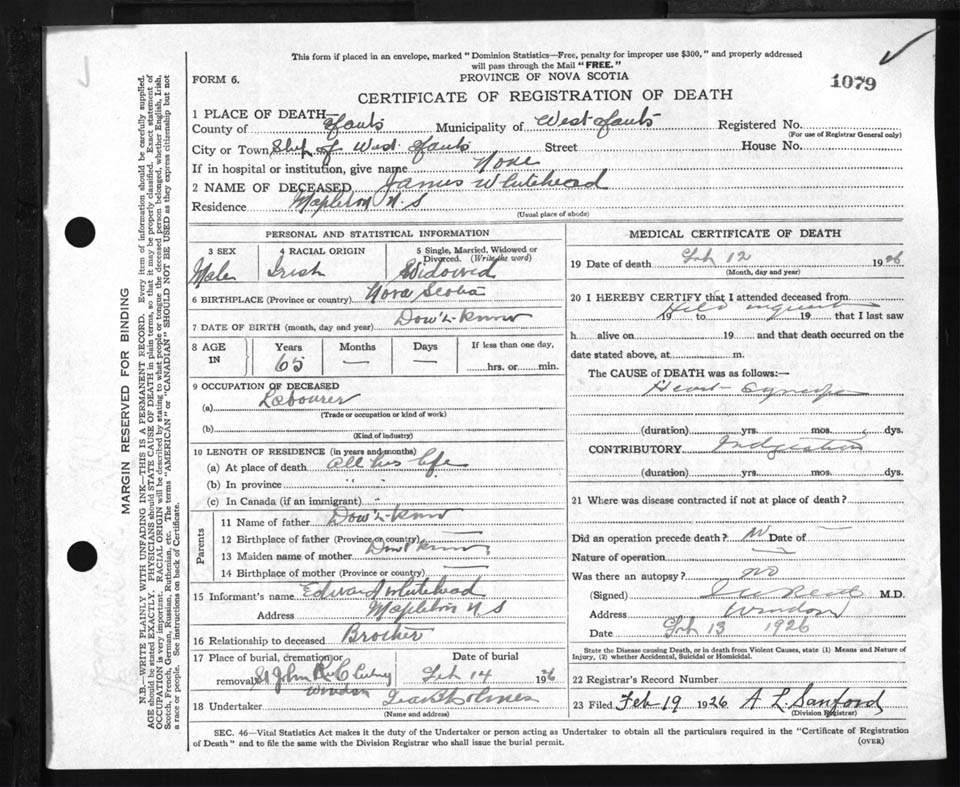 This form if placed in an envelope, marked "Dominion Statistics—Free, penalty for improper use $300," and properly addressed
will pass through the Mail "FREE."
FORM 6.
PROVINCE OF NOVA SCOTIA
1079
CERTIFICATE OF REGISTRATION OF DEATH
1 PLACE OF DEATH—
County of Hants Municipality of West Hants Registered No.
(For use of Registrar General only)
City or Town of West Hants Street House No.
If in hospital or institution, give name None
2 NAME OF DECEASED James Whitehead
Residence Mapleton N.S
(Usual place of abode)
PERSONAL AND STATISTICAL INFORMATION
3 SEX 4 RACIAL ORIGIN 5 Single, Married, Widowed or
Divorced. (Write the word)
Male Irish Widowed
6 BIRTHPLACE (Province or country) Nova Scotia
7 DATE OF BIRTH (month, day and year) Dow't-know
8 AGE IN Years Months Days If less than one day,
65 — — hrs. or min.
9 OCCUPATION OF DECEASED
(a) Labourer
(Trade or occupation or kind of work)
(b)
(Kind of industry)
10 LENGTH OF RESIDENCE (in years and months)
(a) At place of death All his life
(b) In province " "
(c) In Canada (if an immigrant) "
Parents
11 Name of father Dow't-know
12 Birthplace of father (Province or country) —
13 Maiden name of mother Dont know
14 Birthplace of mother (Province or country) —
15 Informant's name Edward Whitehead
Address Mapleton N S
16 Relationship to deceased Brother
17 Place of burial, cremation or removal Date of burial
St John Windsor Feb 14 1926
18 Undertaker
(Name and address)
MEDICAL CERTIFICATE OF DEATH
19 Date of death Feb 12 1926
(Month, day and year)
20 I HEREBY CERTIFY that I attended deceased from
Held inquest
19 to 19 that I last saw
h alive on 19 and that death occurred on the
date stated above, at m.
The CAUSE of DEATH was as follows:—
Heart Syncope
(duration) yrs. mos. dys.
CONTRIBUTORY Indigestion
(duration) yrs. mos. dys.
21 Where was disease contracted if not at place of death?
Did an operation precede death? No Date of —
Nature of operation —
Was there an autopsy? no
(Signed) M.D.
Address Windsor
Date Feb 13 1926
State the Disease causing Death, or in death from Violent Causes, state (1) Means and Nature of
Injury, (2) whether Accidental, Suicidal or Homicidal.
22 Registrar's Record Number
23 Filed Feb 19 1926 A L Sanford
(Division Registrar)
SEC. 46—Vital Statistics Act makes it the duty of the Undertaker or person acting as Undertaker to obtain all the particulars required in the "Certificate of Registration
of Death" and to file the same with the Division Registrar who shall issue the burial permit.
(OVER)
MARGIN RESERVED FOR BINDING
N.B.—WRITE PLAINLY WITH UNFADING INK—THIS IS A PERMANENT RECORD. Every item of information should be carefully supplied.
AGE should be stated EXACTLY. PHYSICIANS should STATE CAUSE OF DEATH in plain terms, so that it may be properly classified. Exact statement of
OCCUPATION is very important. RACIAL ORIGIN will be described by stating to what people or tongue the deceased person belonged, whether English, Irish,
Scotch, French, German, Russian, Ruthenian, etc. The terms "AMERICAN" or "CANADIAN" SHOULD NOT BE USED as they express citizenship but not
a race or people. See instructions on back of Certificate.